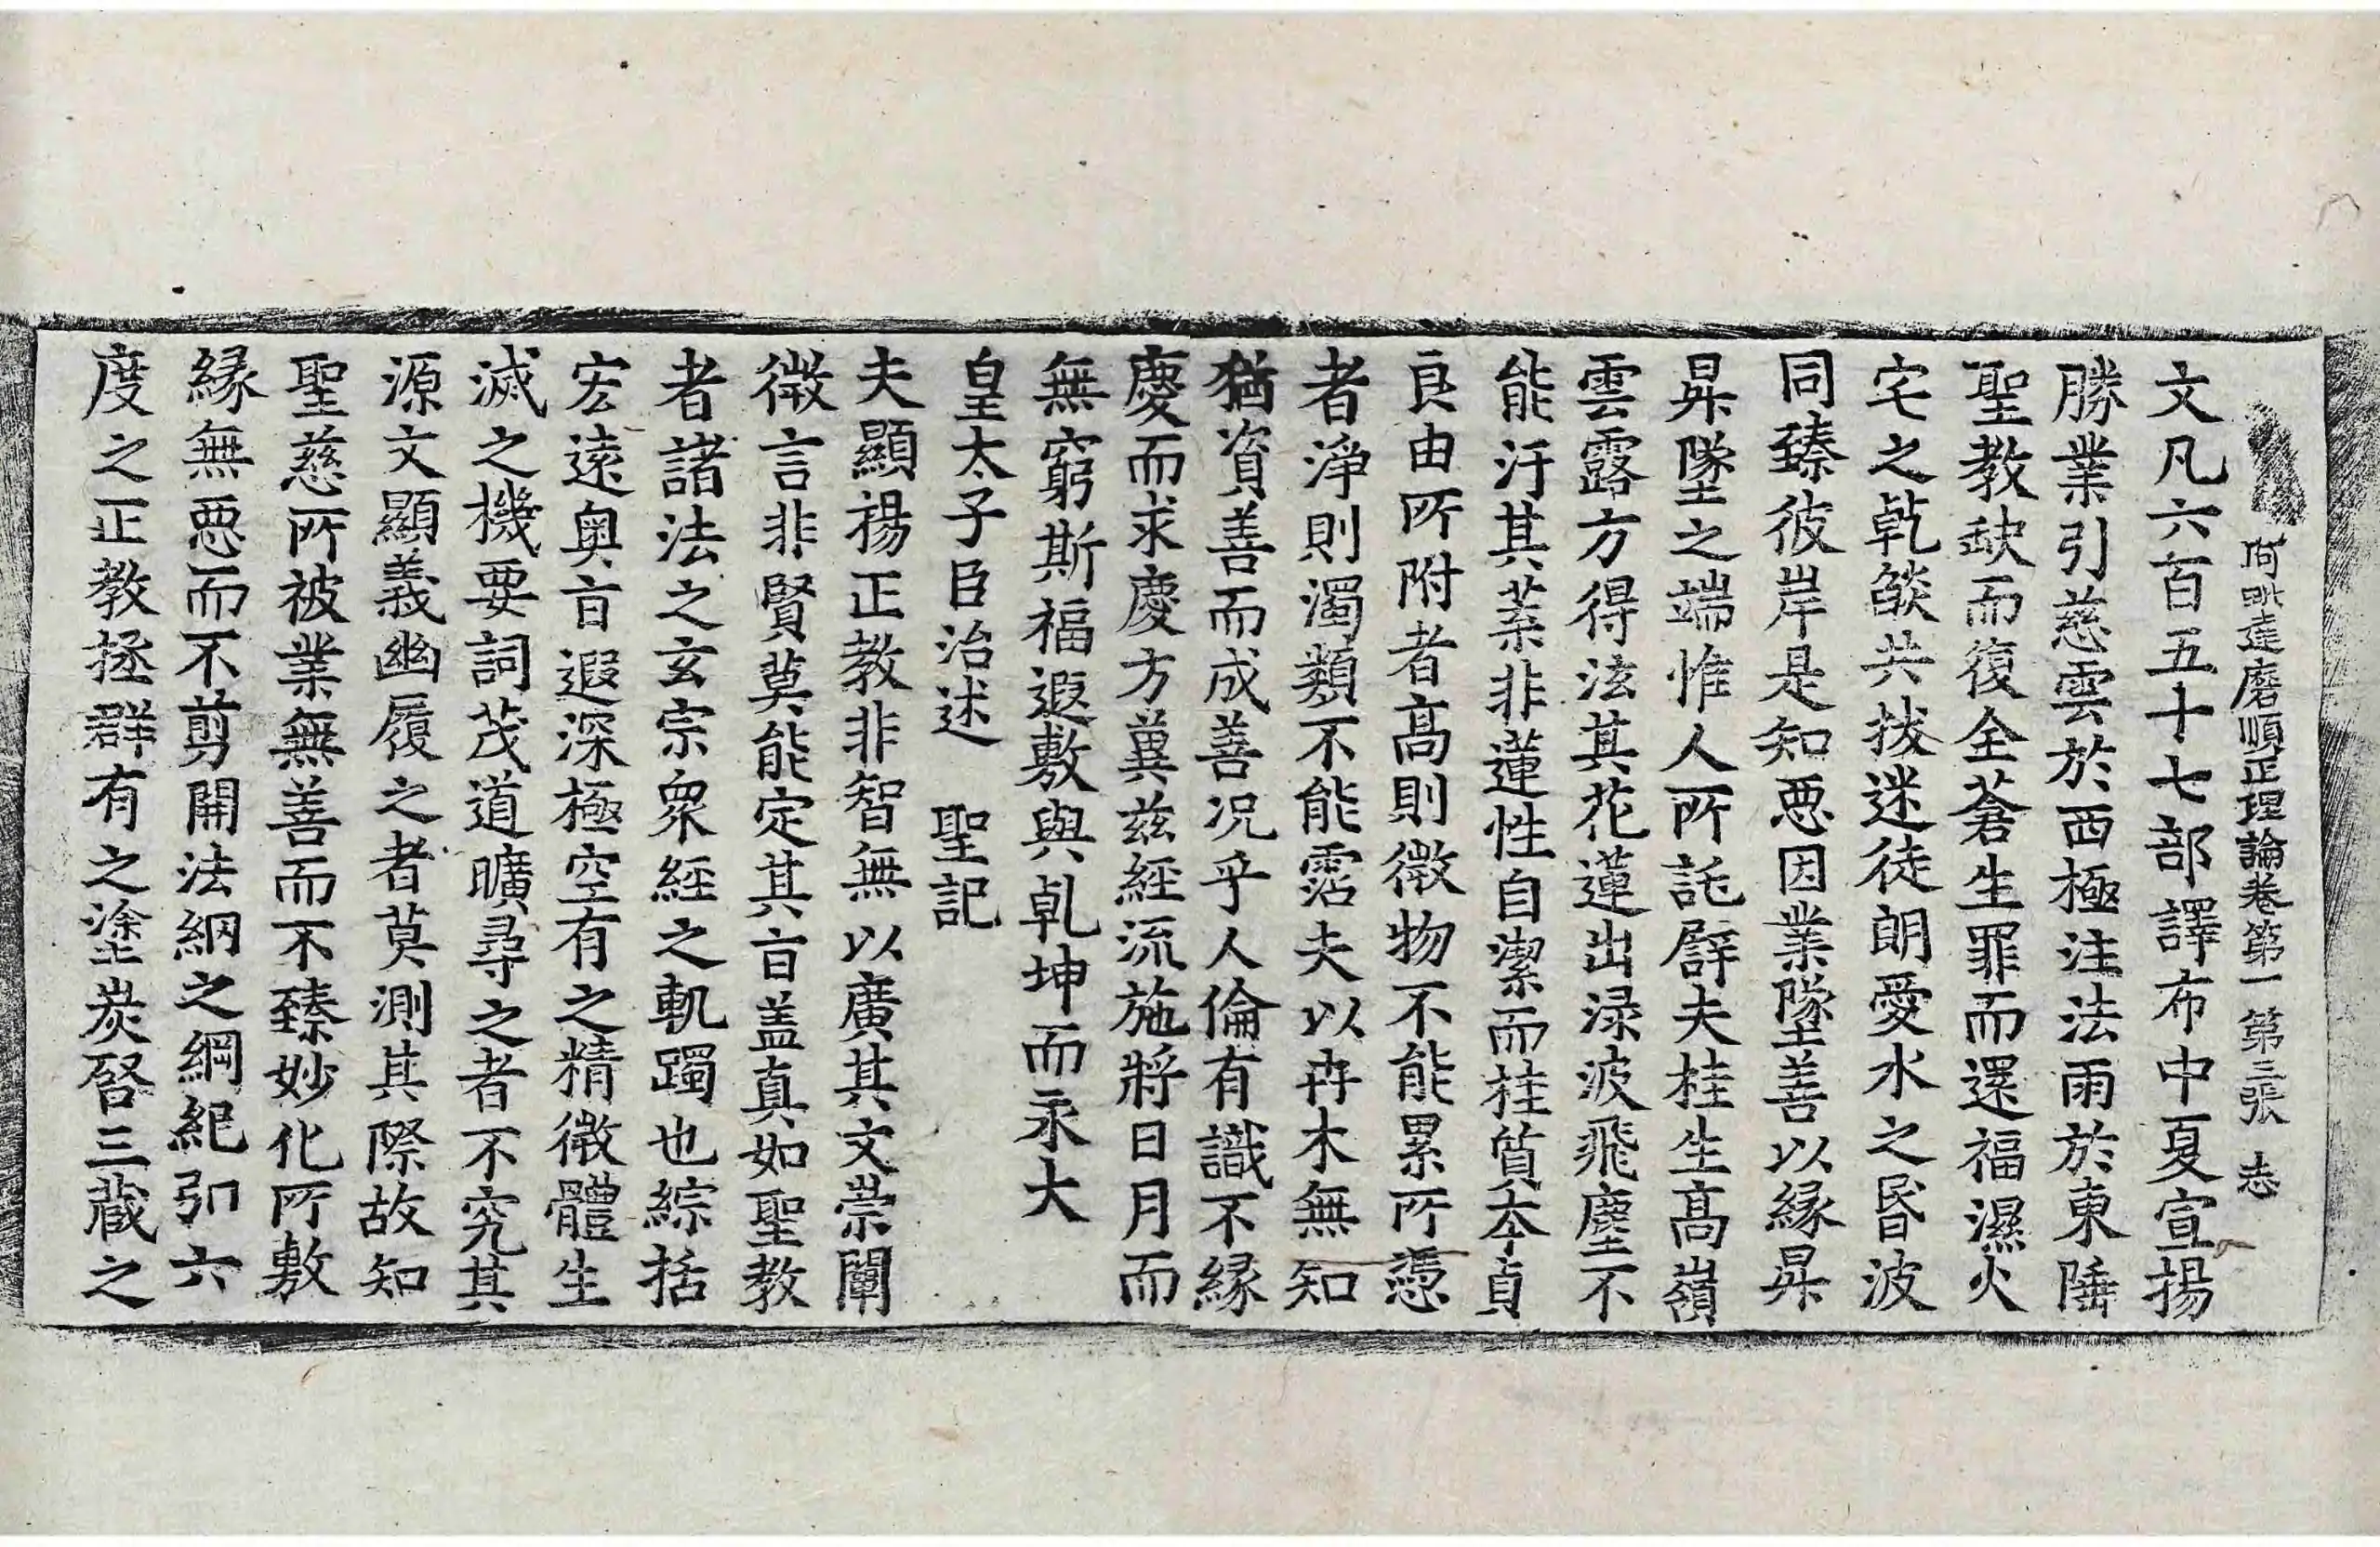 阿毗達磨順正理論卷第一 第三張 志
文凡六百五十七部譯布中夏宣揚
勝業引慈雲於西極注法雨於東陲
聖教缺而復全蒼生罪而還福濕火
宅之乹燄共拔迷徒朗愛水之昏波
同臻彼岸是知惡因業墜善以緣昇
昇墜之端惟人所託辟夫桂生髙嶺
雲露方得泫其花蓮出渌波飛塵不
能汙其葉非蓮性自潔而桂質夲貞
良由所附者髙則微物不能累所憑
者淨則濁類不能霑夫以卉木無知
猶資善而成善况乎人倫有識不緣
慶而求慶方兾兹經流施將日月而
無窮斯福遐敷與乹坤而永大
皇太子臣治述 聖記
夫顯揚正教非智無以廣其文崇闡
微言非賢莫能定其㫖盖真如聖教
者諸法之玄宗衆經之軌躅也綜括
宏逺奥㫖遐深極空有之精微體生
滅之機要詞茂道曠尋之者不究其
源文顯義幽履之者莫測其際故知
聖慈所被業無善而不臻妙化所敷
緣無惡而不剪開法綱之綱紀引六
度之正教拯群有之塗炭啓三藏之